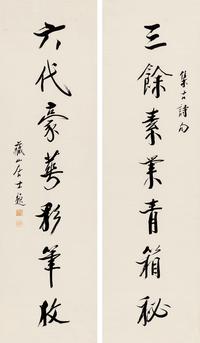 集古詩句
三餘素業青箱秘
六代豪華彩筆收
山居士